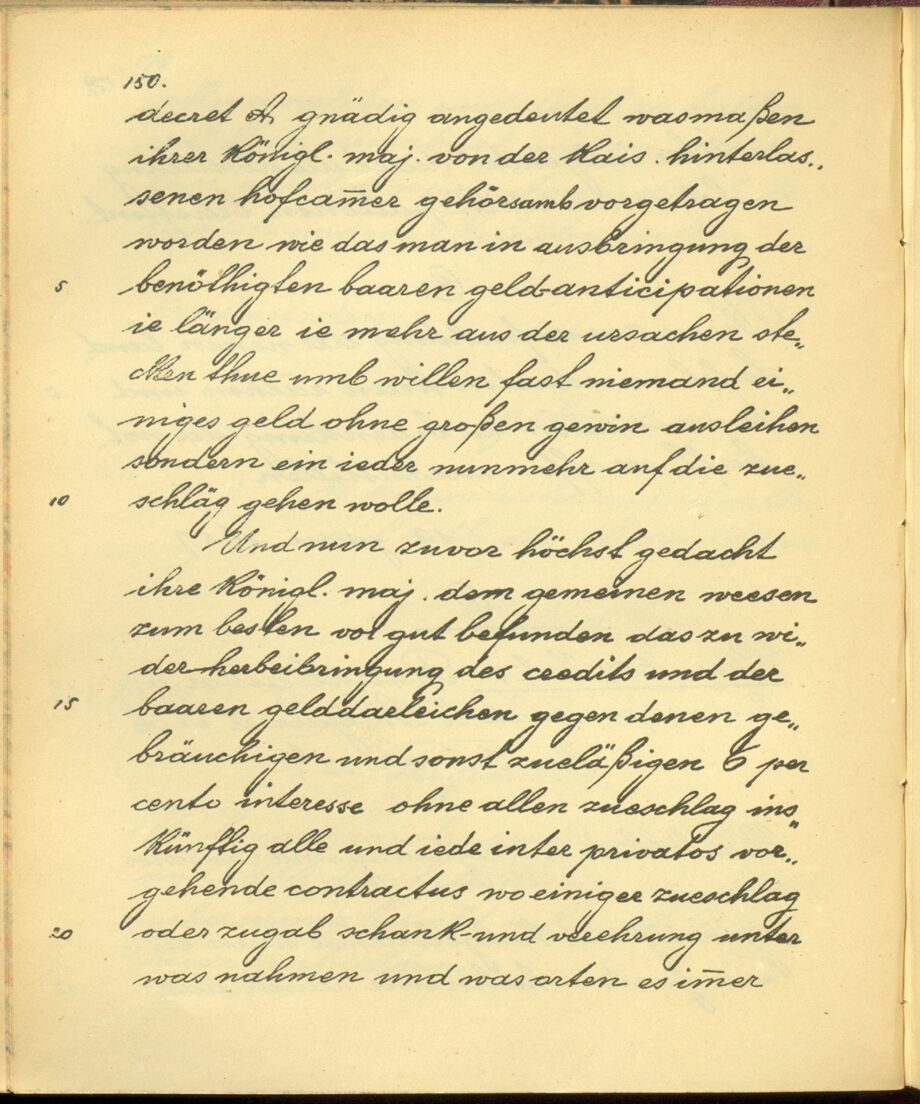 150.
decret A gnädig angedeutet wasmaßen
ihrer Königl. maj. von der Kais. hinterlas„
senen hofcam̅er gehörsamb vorgetragen
worden wie das man in ausbringung der
5 benöthigten baaren geld-anticipationen
ie länger ie mehr aus der ursachen ste„
cken thue umb willen fast niemand ei„
niges geld ohne großen gewin ausleihen
sondern ein ieder nunmehr auf die zue„
10 schläg gehen wolle.
Und nun zuvor höchst gedacht
ihre Königl. maj. dem gemeinen weesen
zum besten vor gut befunden das zu wi„
der herbeibringung des credits und der
15 baaren gelddarleichen gegen denen ge„
bräuchigen und sonst zueläßigen 6 per
cento interesse ohne allen zueschlag ins„
künftig alle und iede inter privatos vor„
gehende contractus wo einiger zueschlag
20 oder zugab schank-und verehrung unter
was nahmen und was arten es im̅er